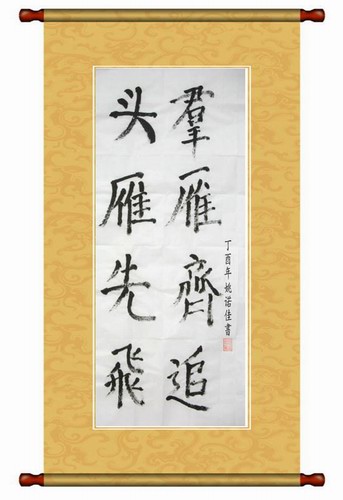 头雁先飛
羣雁齊追
丁酉年姚諾佳書